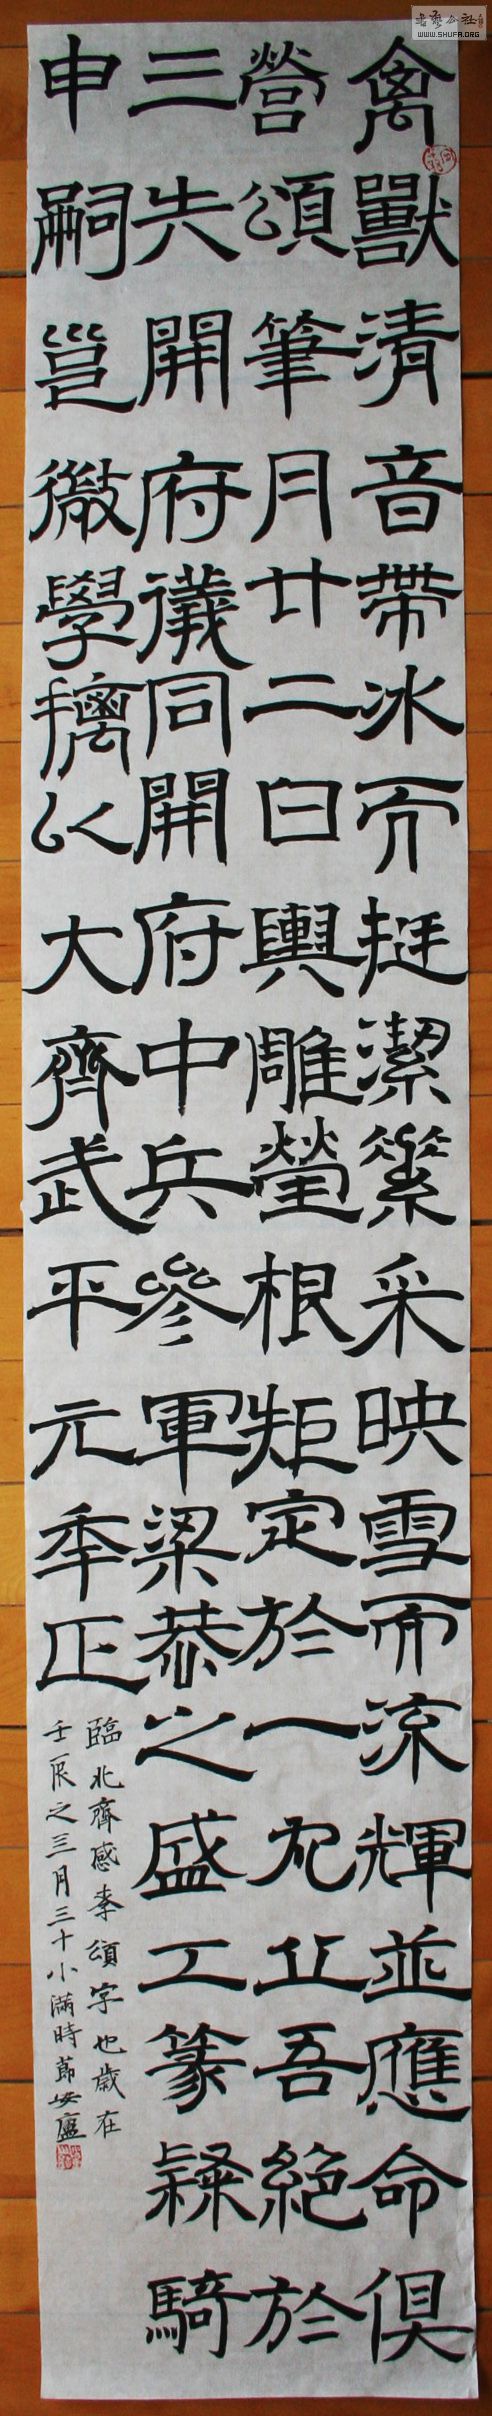 書藝公社
WWW.SHUFA.ORG
禽獸清音帶冰而挺潔采映雪而涼輝並應命俱
營頌筆月廿二日輿雕瑩根矩定於一吾絕於
三先開府儀同開府中兵參軍梁恭之盛工篆隸騎
申嗣邕微學摛以大齊武平元年正
臨北齊感孝頌字也歲在
壬辰之三月三十小滿時節安廬